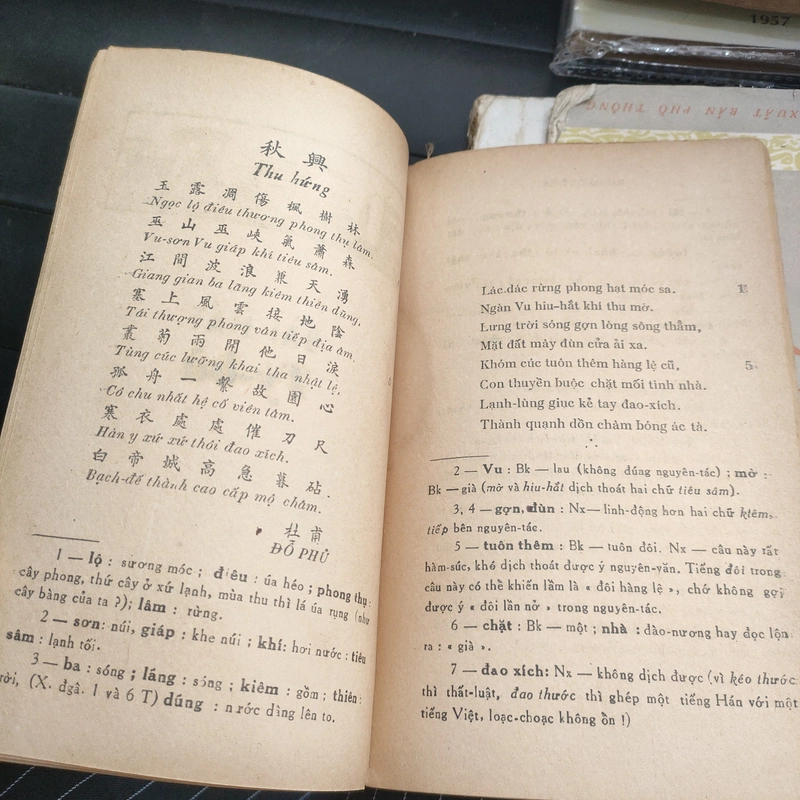 秋興
Thu hứng
玉露凋傷楓樹林
Ngọc lộ điêu thương phong thụ lâm.
巫山巫峽氣蕭森
Vu-sơn Vu giáp khí tiêu sâm.
江間波浪兼天湧
Giang gian ba lãng kiêm thiên dũng,
塞上風雲接地陰
Tái thượng phong vân tiếp địa âm.
叢菊兩開他日淚
Tùng cúc lưỡng khai tha nhật lệ,
孤舟一繫故園心
Cô chu nhất hệ cố viên tâm.
寒衣處處催刀尺
Hàn y xứ xứ thôi đao xích.
白帝城高急暮砧.
Bạch-đế thành cao cấp mộ châm.
杜甫
ĐỖ PHỦ
1 — lộ : sương móc ; điêu : úa héo ; phong thụ :
cây phong, thứ cây ở xứ lạnh, mùa thu thì lá úa rụng (như
cây bàng của ta ?); lâm : rừng.
2 — sơn: núi, giáp : khe núi ; khí: hơi nước : tiêu
sâm : lạnh tối.
3 — ba : sóng ; láng : sóng ; kiêm : gồm ; thiên :
rời, (X. đgâ. 1 và 6 T) dúng : nước dâng lên to.
Lác.đác rừng phong hạt móc sa. 1
Ngàn Vu hiu-hắt khí thu mờ.
Lưng trời sóng gợn lòng sông thẳm,
Mặt đất mây đùn cửa ải xa.
Khóm cúc tuôn thêm hàng lệ cũ, 5
Con thuyền buộc chặt mối tình nhà.
Lạnh-lùng giục kẻ tay đao-xích.
Thành quạnh dồn chàm bóng ác tà.
2 — Vu : Bk — lau (không đúng nguyên-tác) ; mờ :
Bk — già (mờ và hiu-hắt dịch thoát hai chữ tiêu sâm).
3, 4 — gợn, đùn : Nx — linh-động hơn hai chữ kiêm,
tiếp bên nguyên-tác.
5 — tuôn thêm : Bk — tuôn đôi. Nx — câu này rất
hàm-súc, khó dịch thoát được ý nguyên-văn. Tiếng đôi trong
câu này có thể khiến lầm là « đôi hàng lệ », chớ không gợi
được ý « đôi lần nở » trong nguyên-tác.
6 — chặt : Bk — một ; nhà : đào-nương hay đọc lộn
ra : « già ».
7 — đao xích: Nx — không dịch được (vì kéo thước
thì thất-luật, đao thước thì ghép một tiếng Hán với một
tiếng Việt, loạc-choạc không ồn !)
1957
XUẤT BẢN PHỔ THÔNG